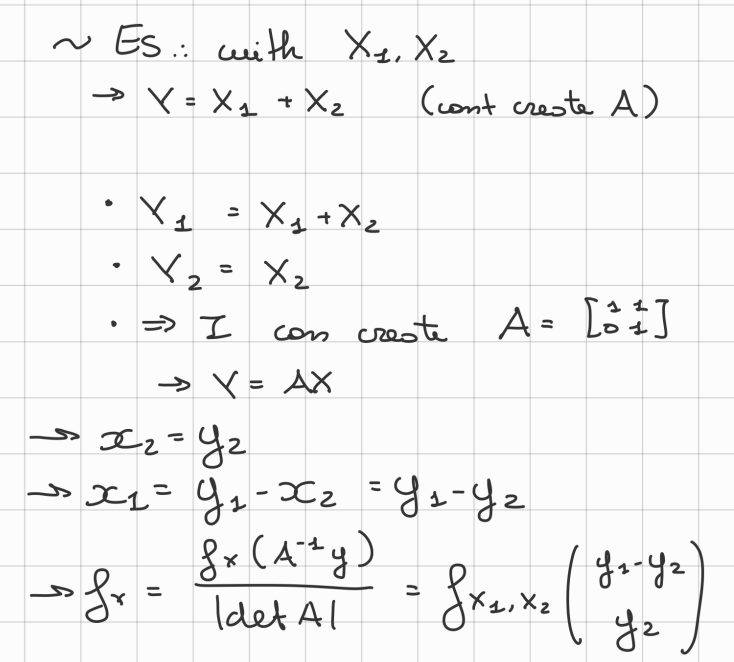 ~ Es.: with X₁, X₂
→ Y = X₁ + X₂ (cant create A)
· Y₁ = X₁ + X₂
· Y₂ = X₂
· ⇒ I can create A = [1 1; 0 1]
→ Y = AX
→ x₂ = y₂
→ x₁ = y₁ - x₂ = y₁ - y₂
→ fᵧ = fₓ(A⁻¹y) / |det A| = f_X₁,X₂ (y₁-y₂; y₂)